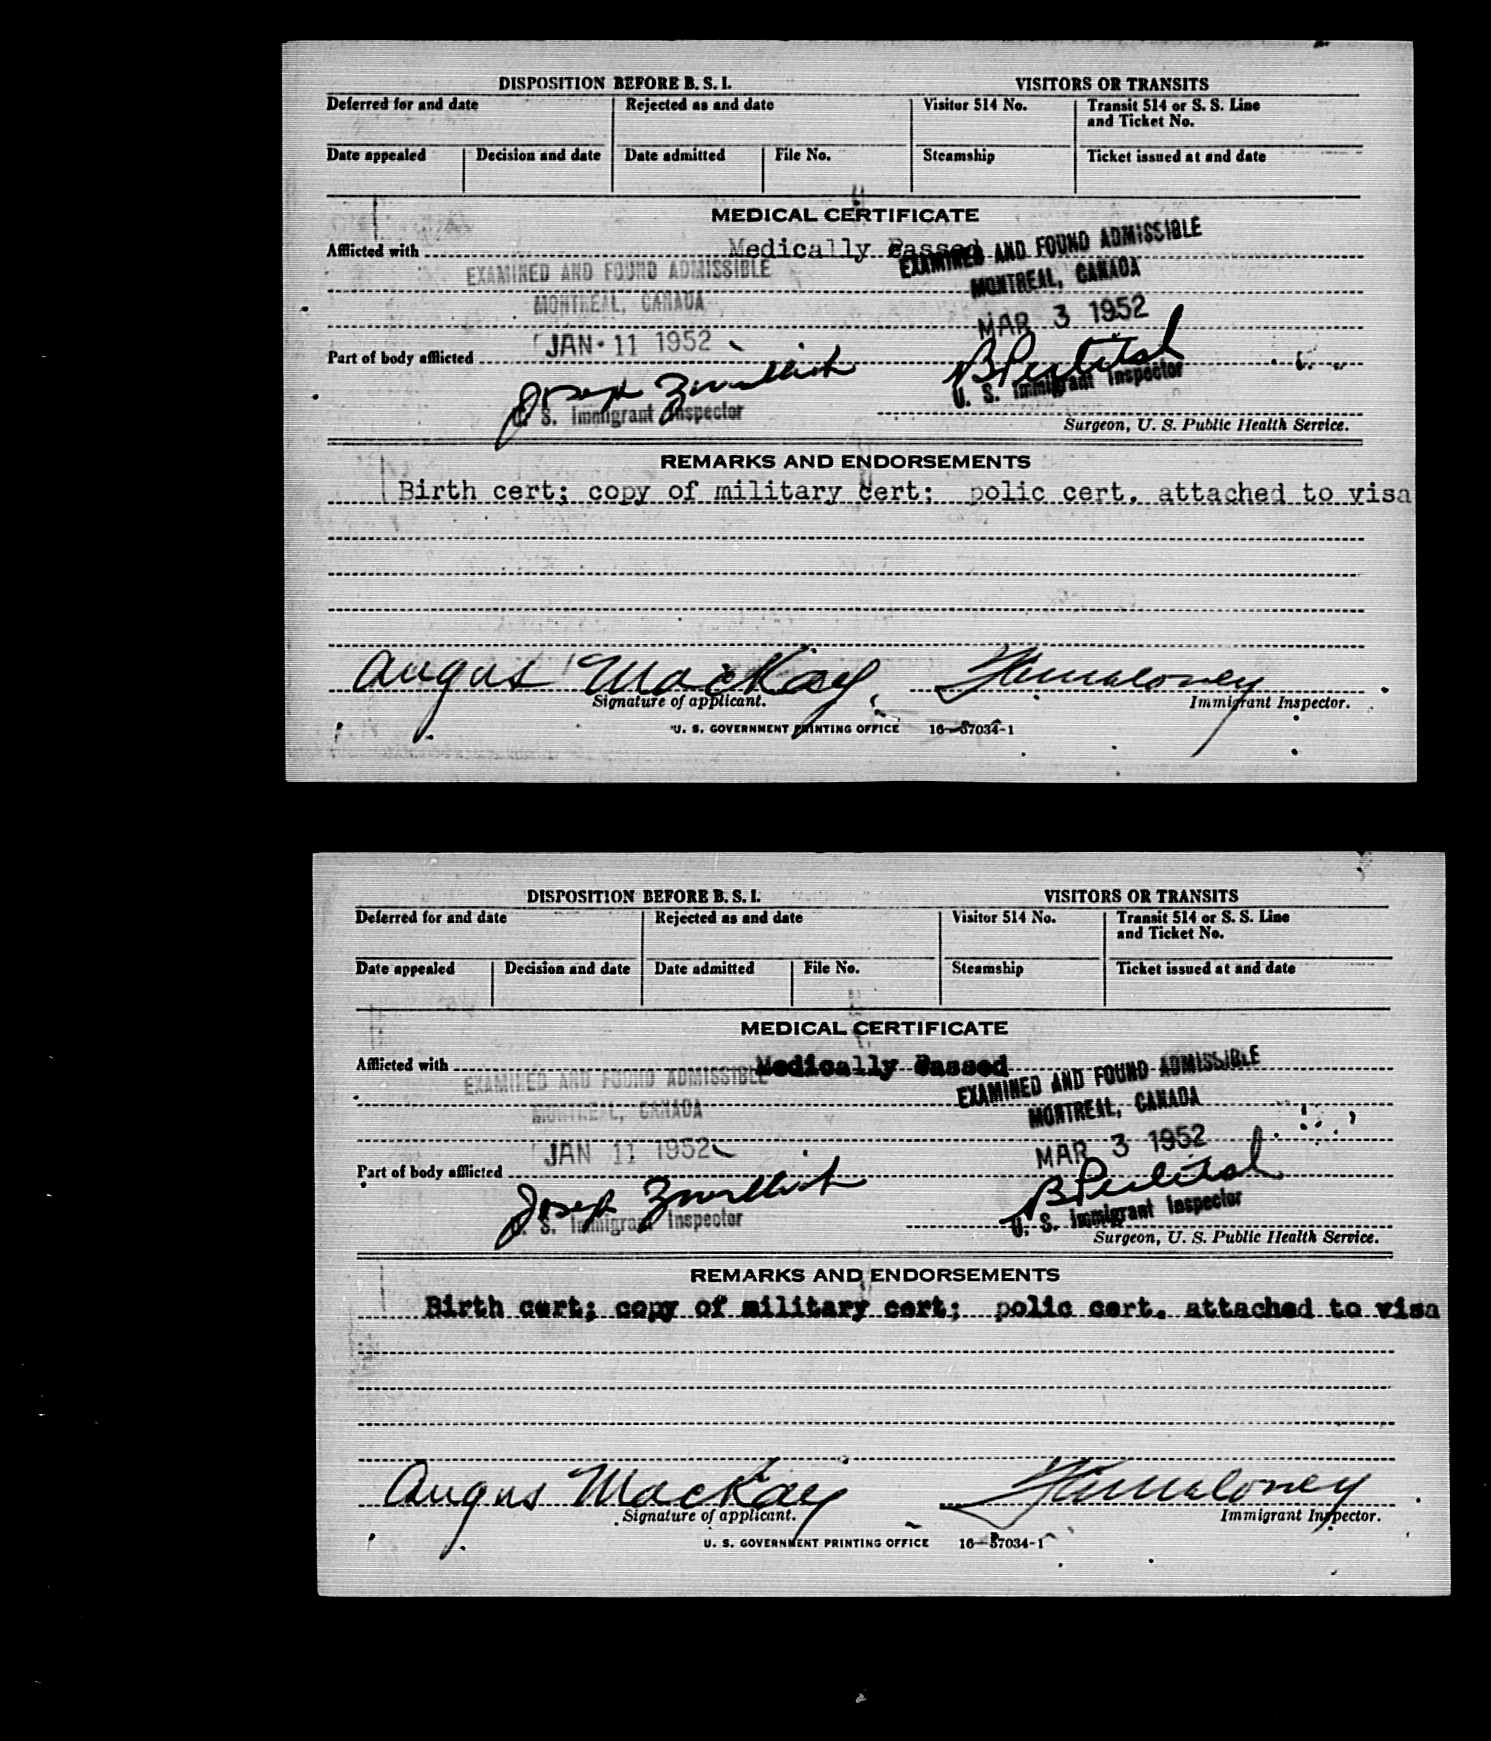 DISPOSITION BEFORE B. S. I.
VISITORS OR TRANSITS
Deferred for and date
Rejected as and date
Visitor 514 No.
Transit 514 or S. S. Line
and Ticket No.
Date appealed
Decision and date
Date admitted
File No.
Steamship
Ticket issued at and date
MEDICAL CERTIFICATE
Afflicted with
Medically Passed
EXAMINED AND FOUND ADMISSIBLE
MONTREAL, CANADA
JAN 11 1952
EXAMINED AND FOUND ADMISSIBLE
MONTREAL, CANADA
MAR 3 1952
Part of body afflicted
Joseph
U. S. Immigrant Inspector
U. S. Immigrant Inspector
Surgeon, U. S. Public Health Service.
REMARKS AND ENDORSEMENTS
Birth cert; copy of military cert; polic cert. attached to visa
Angus MacKay
Signature of applicant.
Immigrant Inspector.
U. S. GOVERNMENT PRINTING OFFICE 16—37034-1
DISPOSITION BEFORE B. S. I.
VISITORS OR TRANSITS
Deferred for and date
Rejected as and date
Visitor 514 No.
Transit 514 or S. S. Line
and Ticket No.
Date appealed
Decision and date
Date admitted
File No.
Steamship
Ticket issued at and date
MEDICAL CERTIFICATE
Afflicted with
Medically Passed
EXAMINED AND FOUND ADMISSIBLE
MONTREAL, CANADA
JAN 11 1952
EXAMINED AND FOUND ADMISSIBLE
MONTREAL, CANADA
MAR 3 1952
Part of body afflicted
Joseph
U. S. Immigrant Inspector
U. S. Immigrant Inspector
Surgeon, U. S. Public Health Service.
REMARKS AND ENDORSEMENTS
Birth cert; copy of military cert; polic cert. attached to visa
Angus MacKay
Signature of applicant.
Immigrant Inspector.
U. S. GOVERNMENT PRINTING OFFICE 16—37034-1